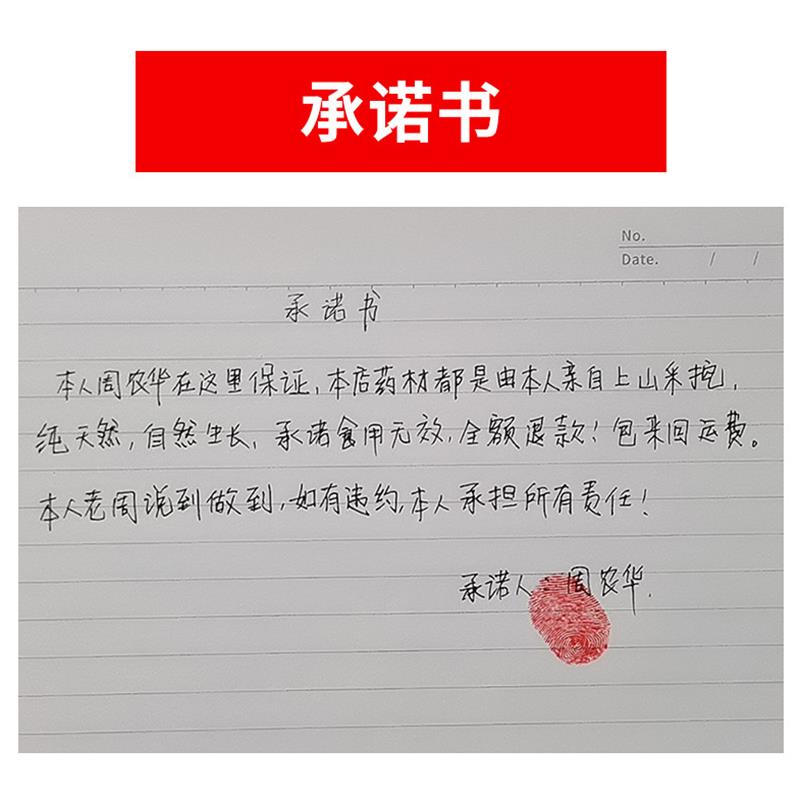 承诺书
No.
Date. / /
承诺书
本人周农华在这里保证,本店药材都是由本人亲自上山采挖,
纯天然,自然生长,承诺食用无效,全额退款!包来回运费。
本人老周说到做到,如有违约,本人承担所有责任!
承诺人:周农华.